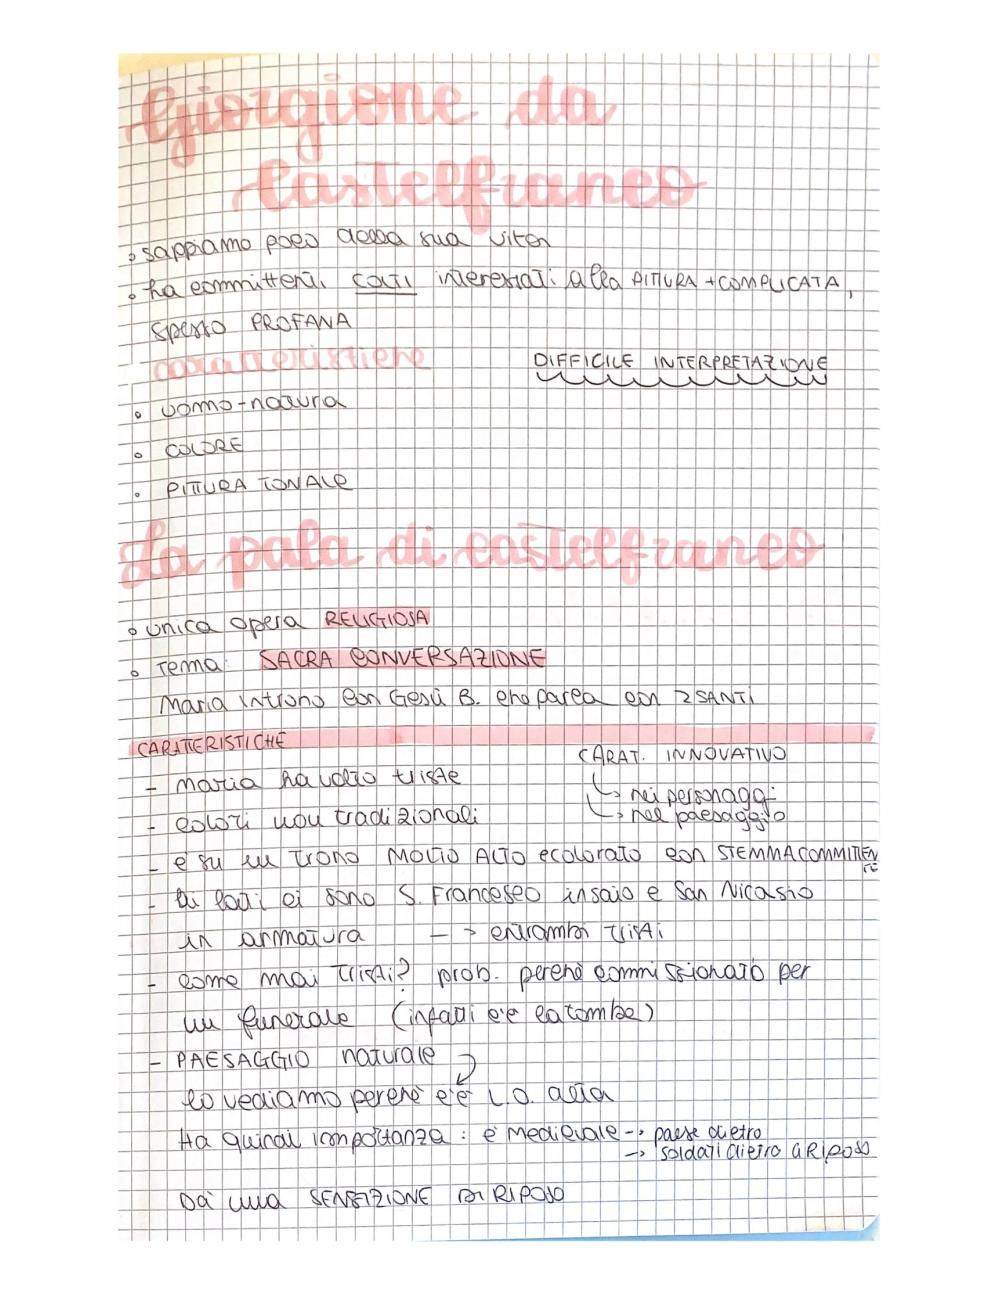 Giorgione da
Castelfranco
• sappiamo poco della sua vita
• ha committenti colti interessati alla PITTURA + COMPLICATA,
spesso PROFANA
caratteristiche
DIFFICILE INTERPRETAZIONE
• uomo-natura
• COLORE
• PITTURA TONALE
La pala di castelfranco
• unica opera RELIGIOSA
• Tema: SACRA CONVERSAZIONE
Maria in trono con Gesù B. che parla con 2 SANTI
CARATTERISTICHE
CARAT. INNOVATIVO
- maria ha volto triste
↳ nei personaggi
↳ nel paesaggio
- colori non tradizionali
- è su un trono MOLTO ALTO e colorato con STEMMA COMMITTENTE
- ai lati ci sono S. Francesco in saio e San Nicasio
in armatura --> entrambi tristi
- come mai tristi? prob. perché commissionato per
un funerale (infatti c'è la tomba)
- PAESAGGIO naturale
lo vediamo perché c'è L.O. alta
Ha quindi importanza: è medievale -> paese dietro
-> soldati dietro a RIPOSO
Dà una SENSAZIONE DI RIPOSO